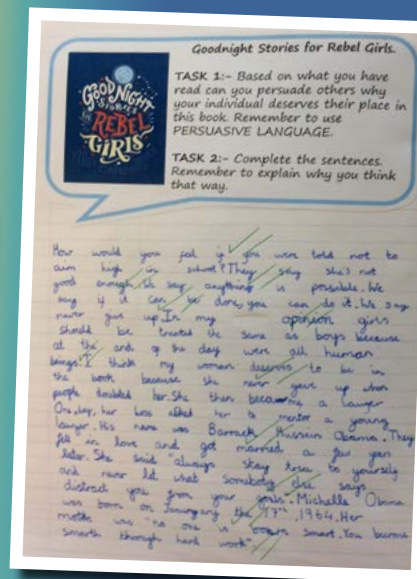 Goodnight Stories for Rebel Girls.
TASK 1:- Based on what you have
read can you persuade others why
your individual deserves their place in
this book. Remember to use
PERSUASIVE LANGUAGE.
TASK 2:- Complete the sentences.
Remember to explain why you think
that way.
GOOD NIGHT
STORIES
REBEL
GIRLS
How would you feel if you were told not to
aim high in school? They say she's not
good enough. We say anything is possible. We
say if it can be done, you can do it. We say
never give up. In my opinion girls
should be treated the same as boys because
at the end of the day were all human
beings. I think my woman deserves to be in
the book because she never gave up when
people doubted her. She then became a lawyer
One day, her boss asked her to mentor a young
lawyer. His name was Barrack Hussein Obama. They
fell in love and got married a few years
later. She said "always stay true to yourself
and never let what somebody else says
distract you from your goals". Michelle Obama
was born on the 17th, 1964. Her
motto was "no one is born smart. You become
smart through hard work"